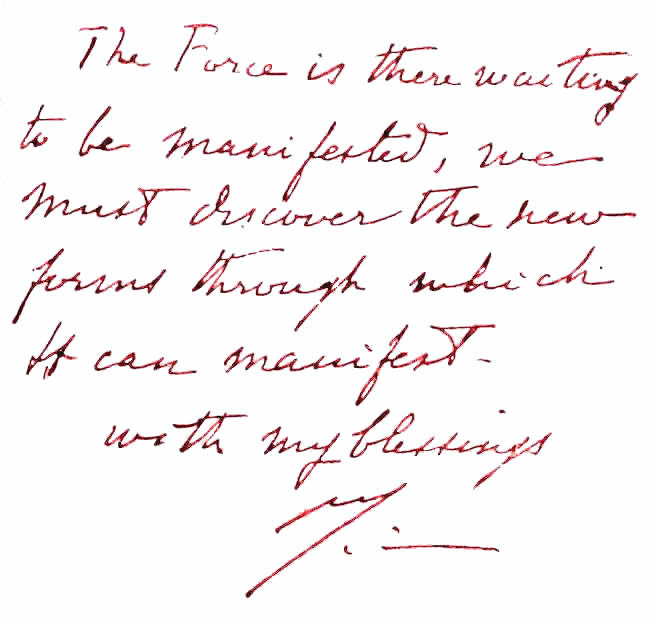 The Force is there waiting
to be manifested, we
must discover the new
forms through which
It can manifest -
with my blessings